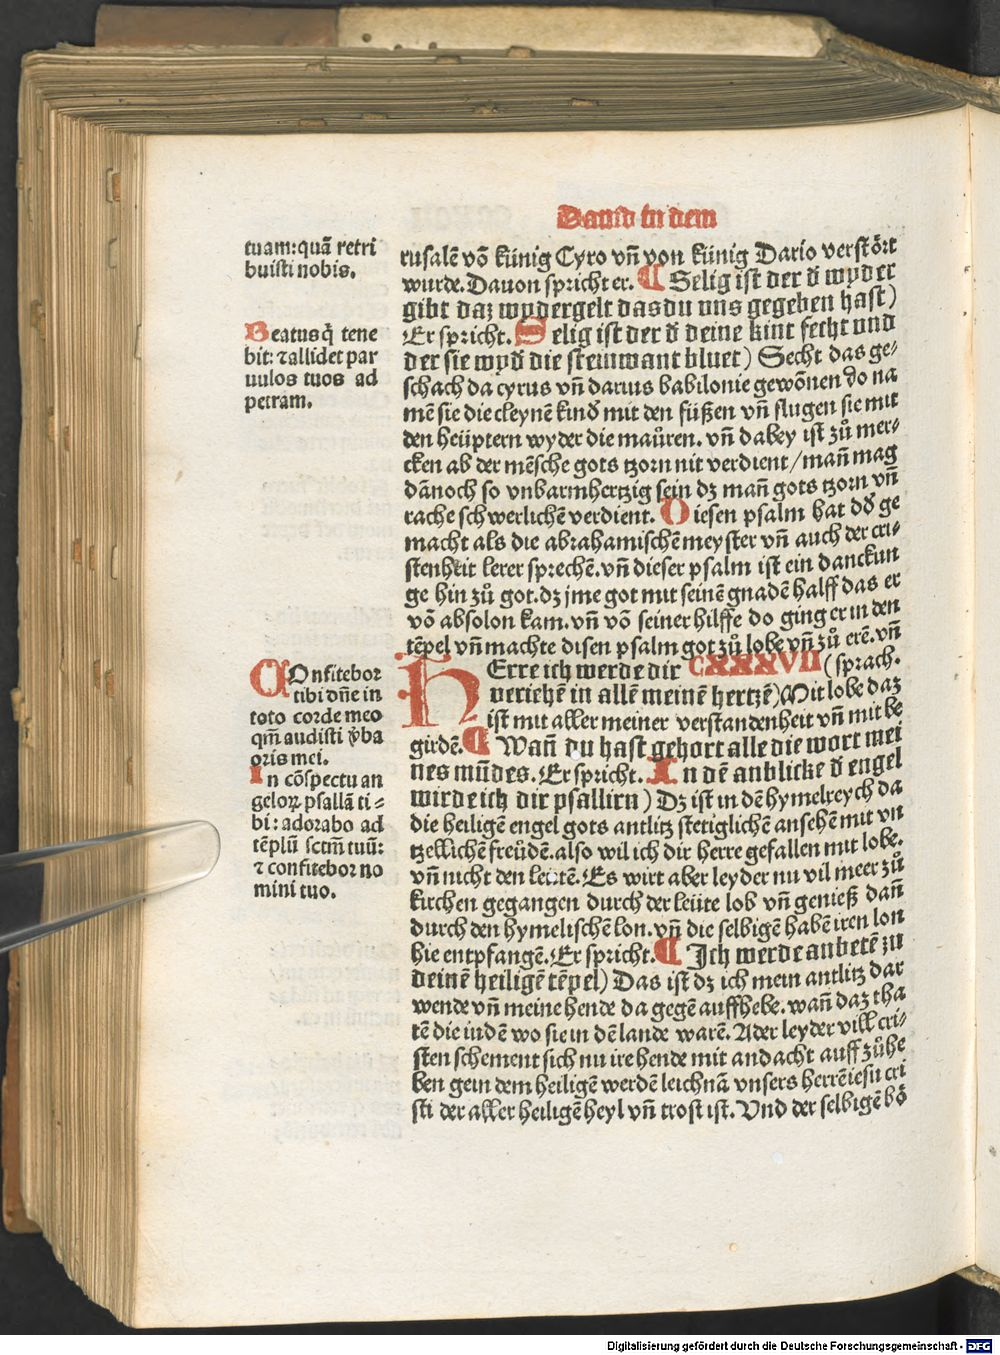 Dauid in dem
tuam: quā retri
buisti nobis.
Beatus q̄ tene
bit: ⁊ allidet par
uulos tuos ad
petram.
COnfitebor
tibi dn̄e in
toto corde meo
qm̄ audisti v̾ba
oris mei.
In cōspectu an
geloꝝ psallā ti⸗
bi: adorabo ad
tēplū sctm̄ tuū:
⁊ confitebor no
mini tuo.
rusalē vō künig Cyro vn̄ von künig Dario verstört
wurde. Dauon spricht er. ¶ Selig ist der d̄ wyder
gibt daz wydergelt das du uns gegeben hast)
Er spricht. Selig ist der d̄ deine kint fecht und
der sie wyd̄ die steinwant bluet) Secht das ge⸗
schach da cyrus vn̄ darius babilonie gewōnen do na
mē sie die cleynē kind̄ mit den füßen vn̄ slugen sie mit
den heüptern wyder die maůren. vn̄ dabey ist zů mer⸗
cken ab der mēsche gots tzorn nit verdient / man̄ mag
dānoch so vnbarmhertzig sein dz man̄ gots tzorn vn̄
rache schwerlichē verdient. Diesen psalm hat dd̄ ge
macht als die abrahamischē meyster vn̄ auch der cri⸗
stenheit lerer sprechē. vn̄ dieser psalm ist ein danckun
ge hin zů got. dz jme got mit seinē gnadē halff das er
vō absolon kam. vn̄ vō seiner hilffe do ging er in den
tēpel vn̄ machte disen psalm got zů lobe vn̄ zů erē. vn̄
HErre ich werde dir CXXXVII (sprach.
veriehē in allē meinē hertzē) Mit lobe daz
ist mit aller meiner verstandenheit vn̄ mit be
girdē. ¶ Wan̄ du hast gehort alle die wort mei
nes mūdes. Er spricht. In dē anblicke d̄ engel
wirde ich dir psallirn) Dz ist in dē hymelreych da
die heiligē engel gots antlitz stetiglichē ansehē mit vn
tzellichē freüdē. also wil ich dir herre gefallen mit lobe.
vn̄ nicht den leutē. Es wirt aber leyder nu vil meer zů
kirchen gegangen durch der leüte lob vn̄ genieß dan̄
durch den hymelischē lon. vn̄ die selbigē habē iren lon
hie entpfangē. Er spricht. ¶ Ich werde anbetē zu
deinē heiligē tēpel) Das ist dz ich mein antlitz dar
wende vn̄ meine hende da gegē auffhebe. wan̄ daz tha
tē die iudē wo sie in dē lande warē. Ader leyder vill cri⸗
sten schement sich nu ire hende mit andacht auff zůhe
ben gein dem heiligē werdē leichnā vnsers herrē iesu cri
sti der aller heiligē heyl vn̄ trost ist. Vnd der selbigē bö
Digitalisierung gefördert durch die Deutsche Forschungsgemeinschaft - DFG